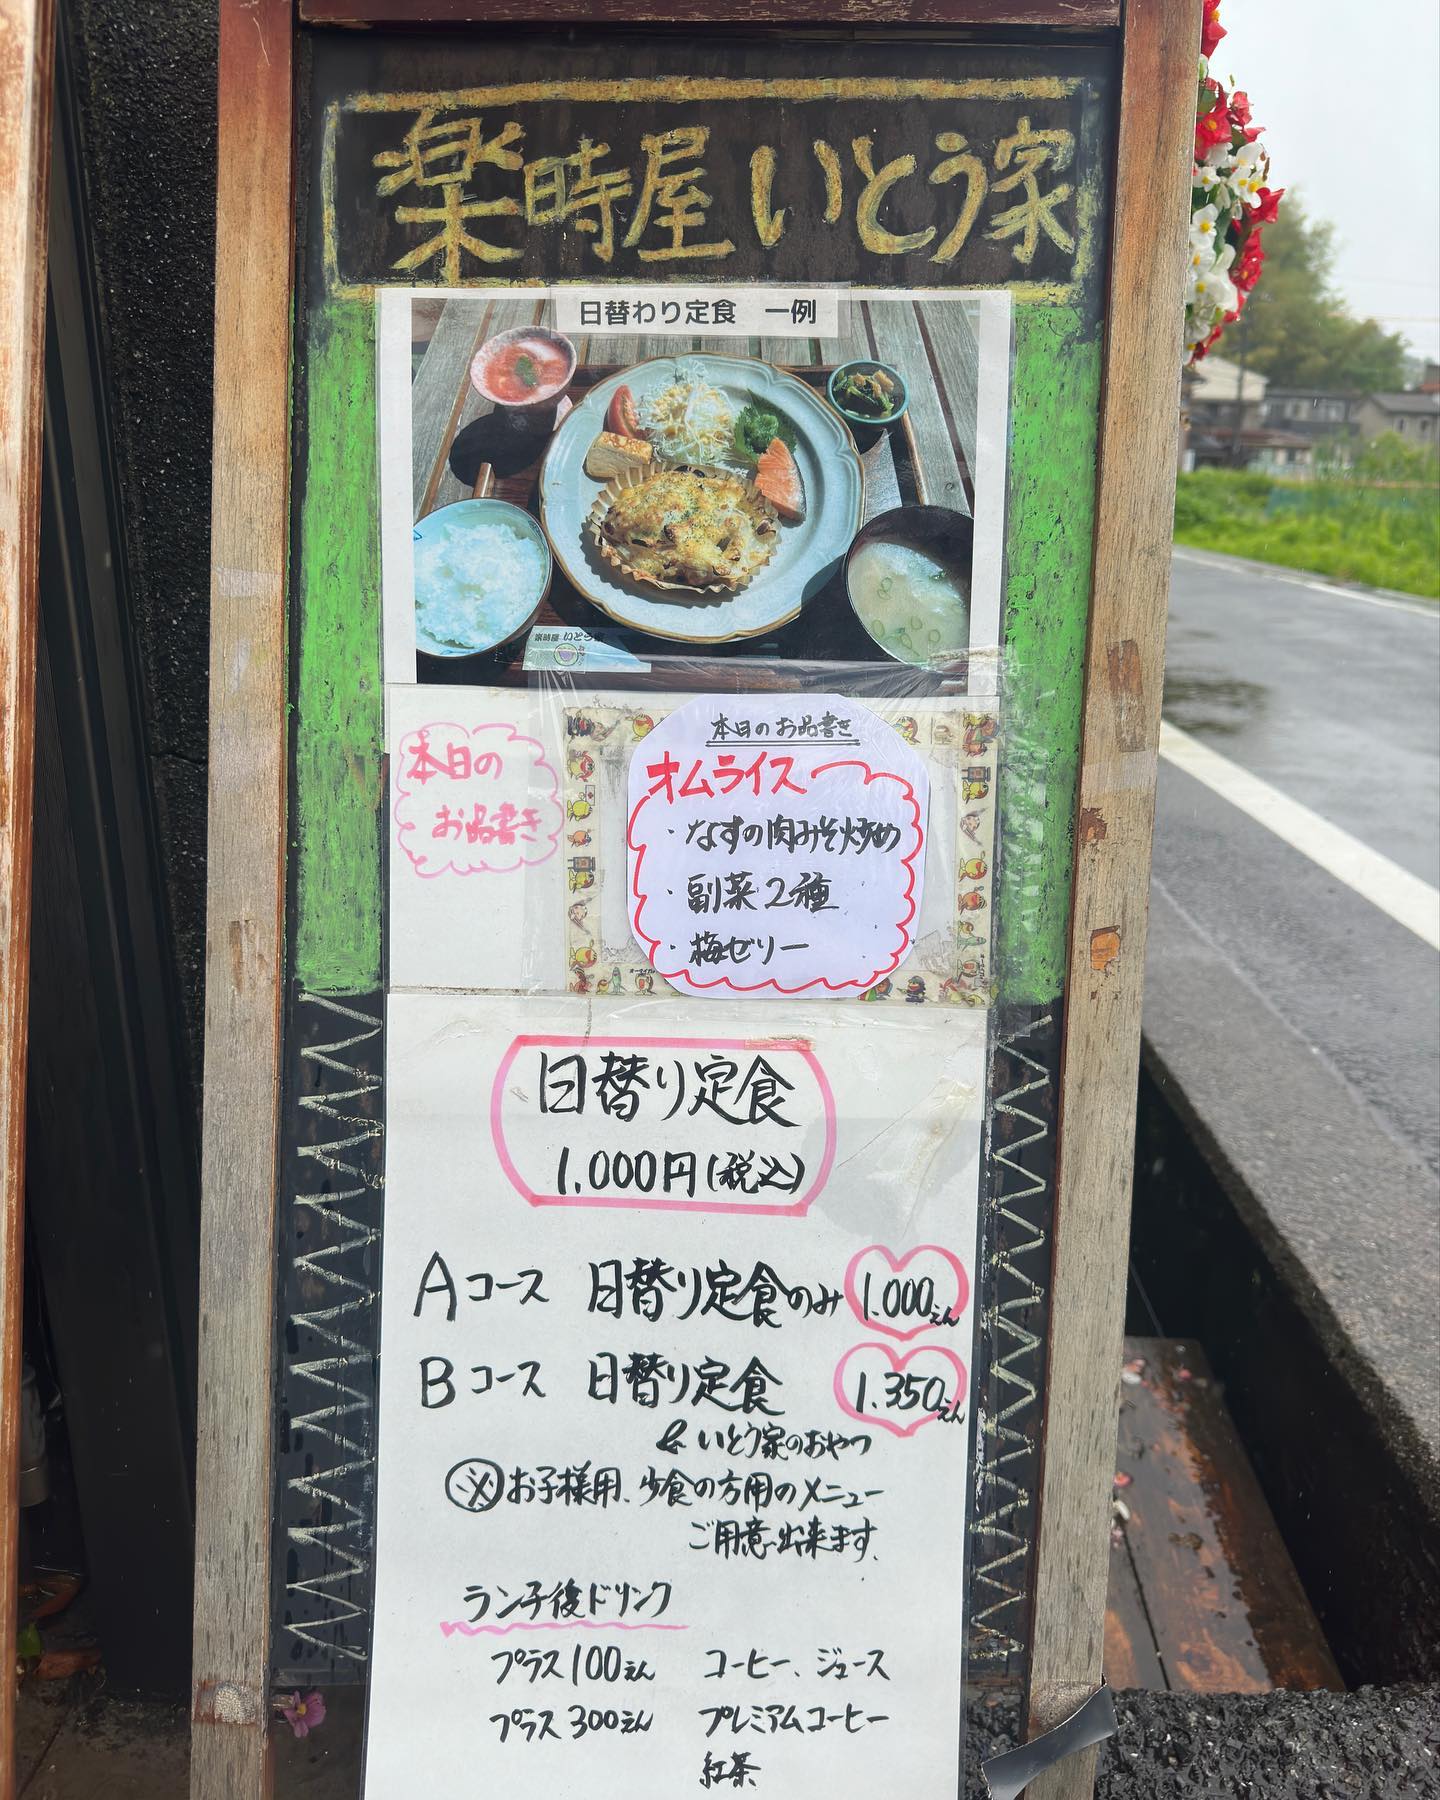 楽時屋 いとう家
日替わり定食 一例
楽時屋 いとう家
本日の
お品書き
本日のお品書き
オムライス
・なすの肉みそ炒め
・副菜2種
・梅ゼリー
日替り定食
1.000円(税込)
Aコース 日替り定食のみ 1.000えん
Bコース 日替り定食 1.350えん
& いとう家のおやつ
※お子様用、少食の方用のメニュー
ご用意出来ます。
ランチ後ドリンク
プラス100えん コーヒー、ジュース
プラス300えん プレミアムコーヒー
紅茶